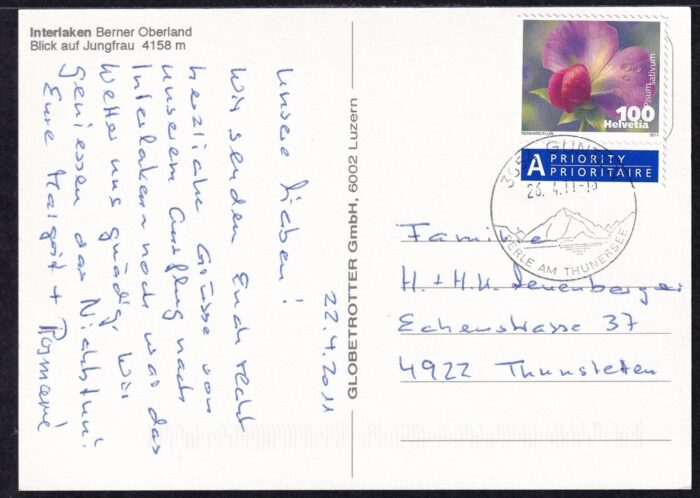 Interlaken Berner Oberland
Blick auf Jungfrau 4158 m
22.4.2011
Unsere Lieben!
Wir senden Euch recht
herzliche Grüsse von
unserem Ausflug nach
Interlaken noch was das
Wetter uns gnädig. Wir
geniessen das Nichtstun!
Eure Margrit + Rosmarie
GLOBETROTTER GmbH, 6002 Luzern
Pisum sativum
100
Helvetia
REINHARD FLURI
2011
A PRIORITY
PRIORITAIRE
GUNTEN
26.4.11-
PERLE AM THUNERSEE
Familie
H. + H.
Echenstrasse 37
4922 Thunstetten